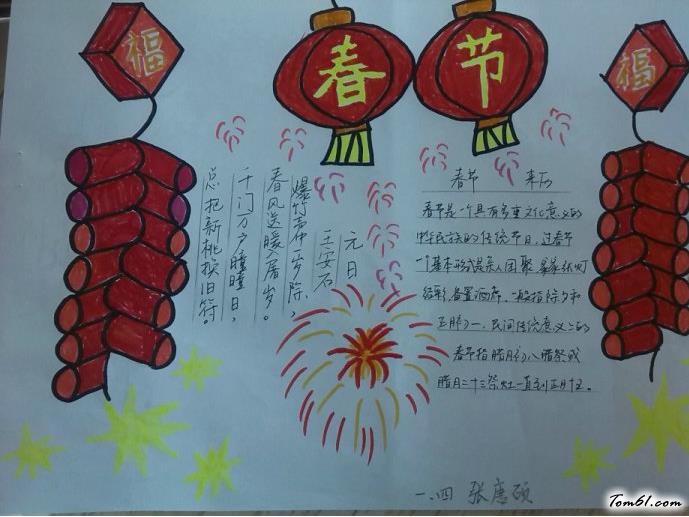 福
春节
福
元日
王安石
爆竹声中一岁除,
春风送暖入屠苏。
千门万户曈曈日,
总把新桃换旧符。
春节 来历
春节是一个具有多重文化意义的
中华民族的传统节日,过春节
一个基本形式是亲人团聚
结彩,备置酒席。一般指除夕和
正月初一,民间传统意义上的
春节指腊月初八腊祭或
腊月二十三祭灶一直到正月十五。
一.四 张唐硕
Tom61.com